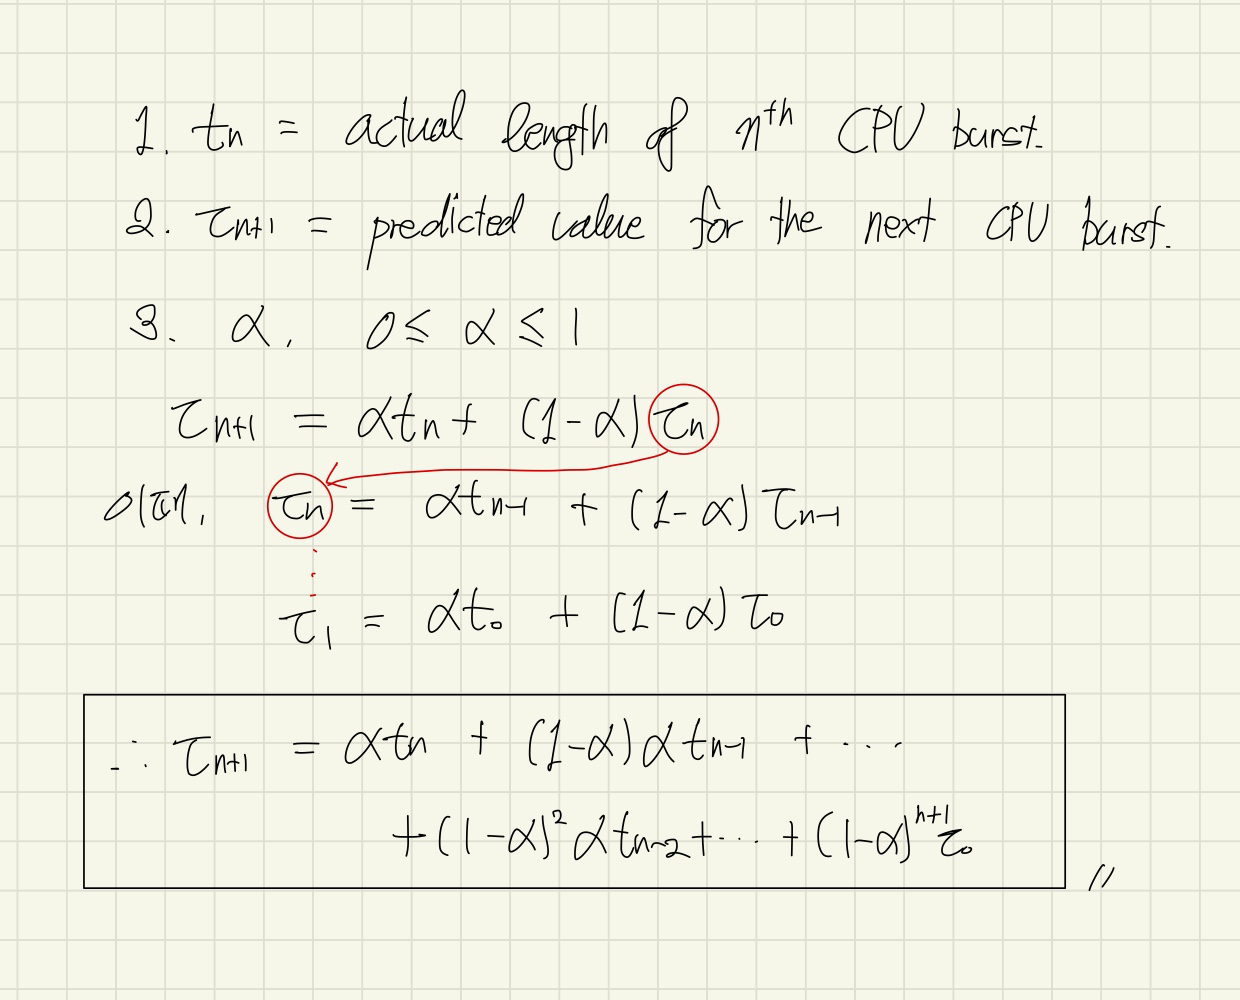 1. tn = actual length of n^th CPU burst.
2. τn+1 = predicted value for the next CPU burst.
3. α, 0 ≤ α ≤ 1
τn+1 = αtn + (1-α)τn
이때, τn = αtn-1 + (1-α)τn-1
⋮
τ1 = αt0 + (1-α)τ0
∴ τn+1 = αtn + (1-α)αtn-1 + ...
+ (1-α)^2 αtn-2 + ... + (1-α)^n+1 τ0 //